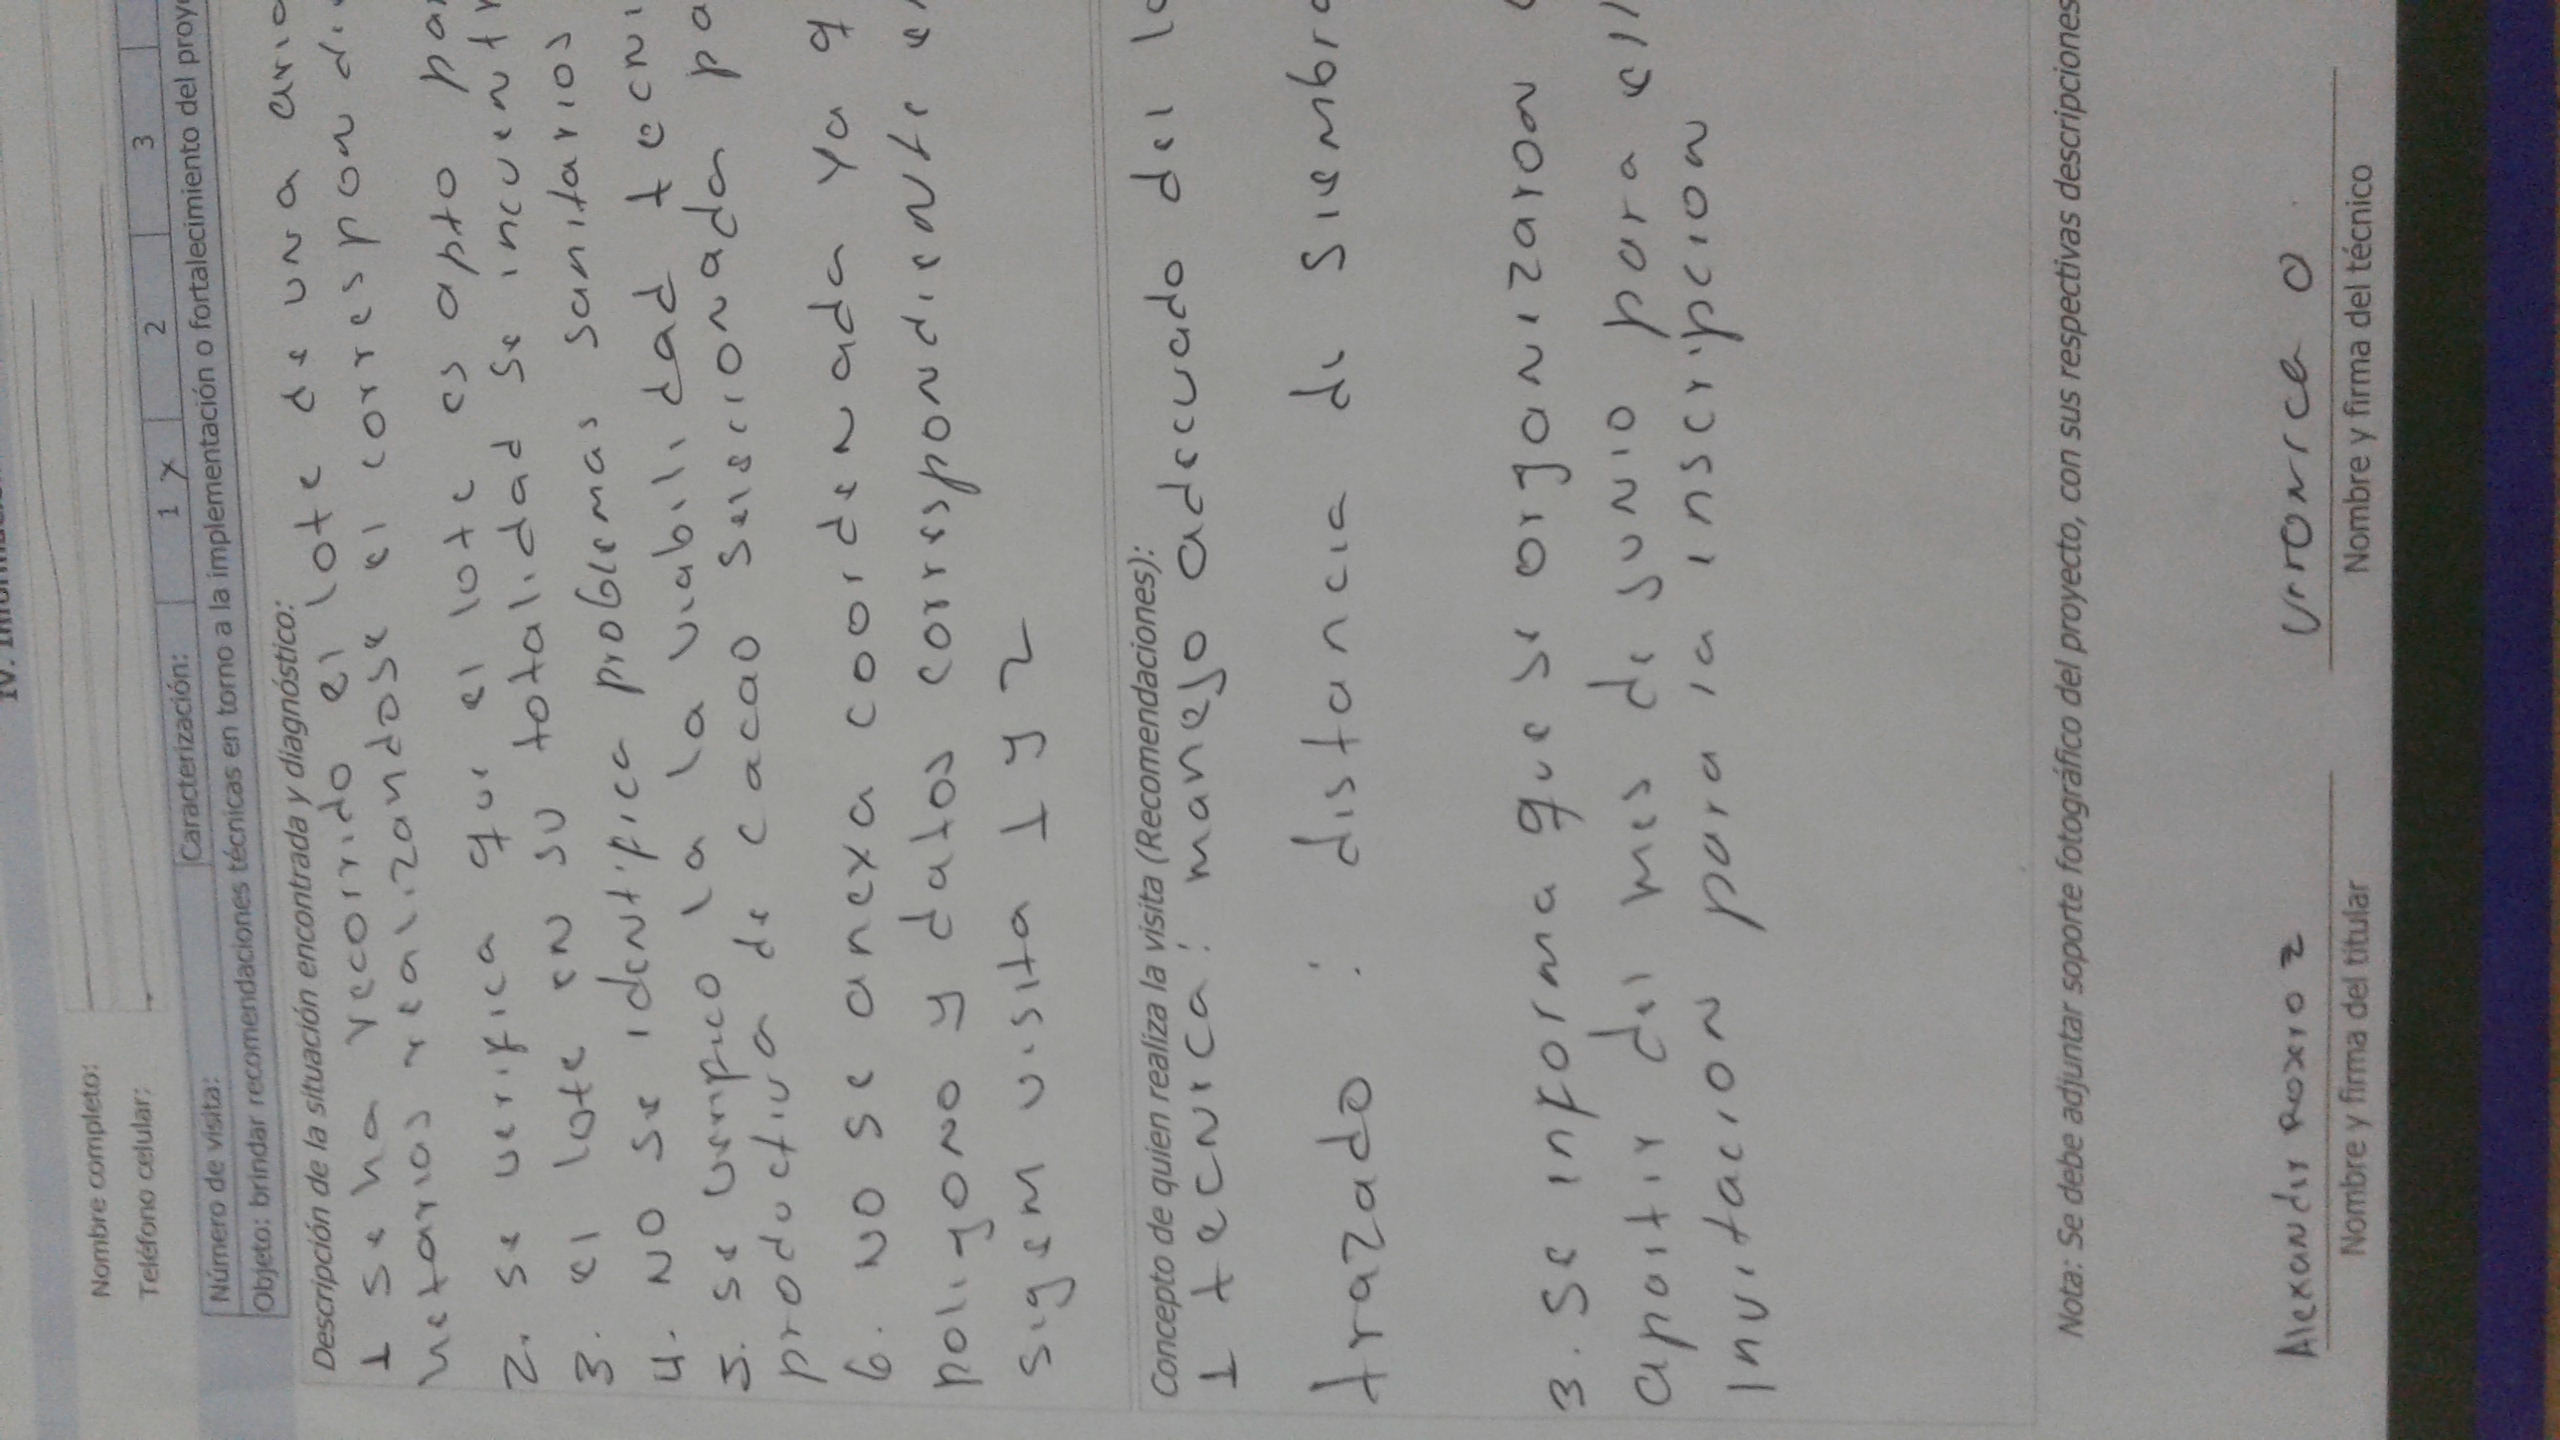 Nombre completo:
Teléfono celular:
Número de visita: Caracterización: 1 X 2 3
Objeto: brindar recomendaciones técnicas en torno a la implementación o fortalecimiento del proye
Descripción de la situación encontrada y diagnóstico:
1 se ha recorrido el lote de una
hetarias realizandose el correspondi
2. se verifica que el lote es apto
3. el lote en su totalidad se incuentr
4. no se identifica problemas sanitarios
5. se verifico la la viabilidad tecni
productiva de cacao seleccionada pa
6. no se anexa coordenada ya q
poligono y datos correspondiente e
sigem visita 1 y 2
Concepto de quien realiza la visita (Recomendaciones):
1 tecnica: manejo adecuado del lo
trazado : distancia de siembra
3. se informa que se organizaron
apartir del mes de junio para ell
invitacion para la inscripcion
Nota: Se debe adjuntar soporte fotográfico del proyecto, con sus respectivas descripciones
Alexander O
Nombre y firma del titular Nombre y firma del técnico